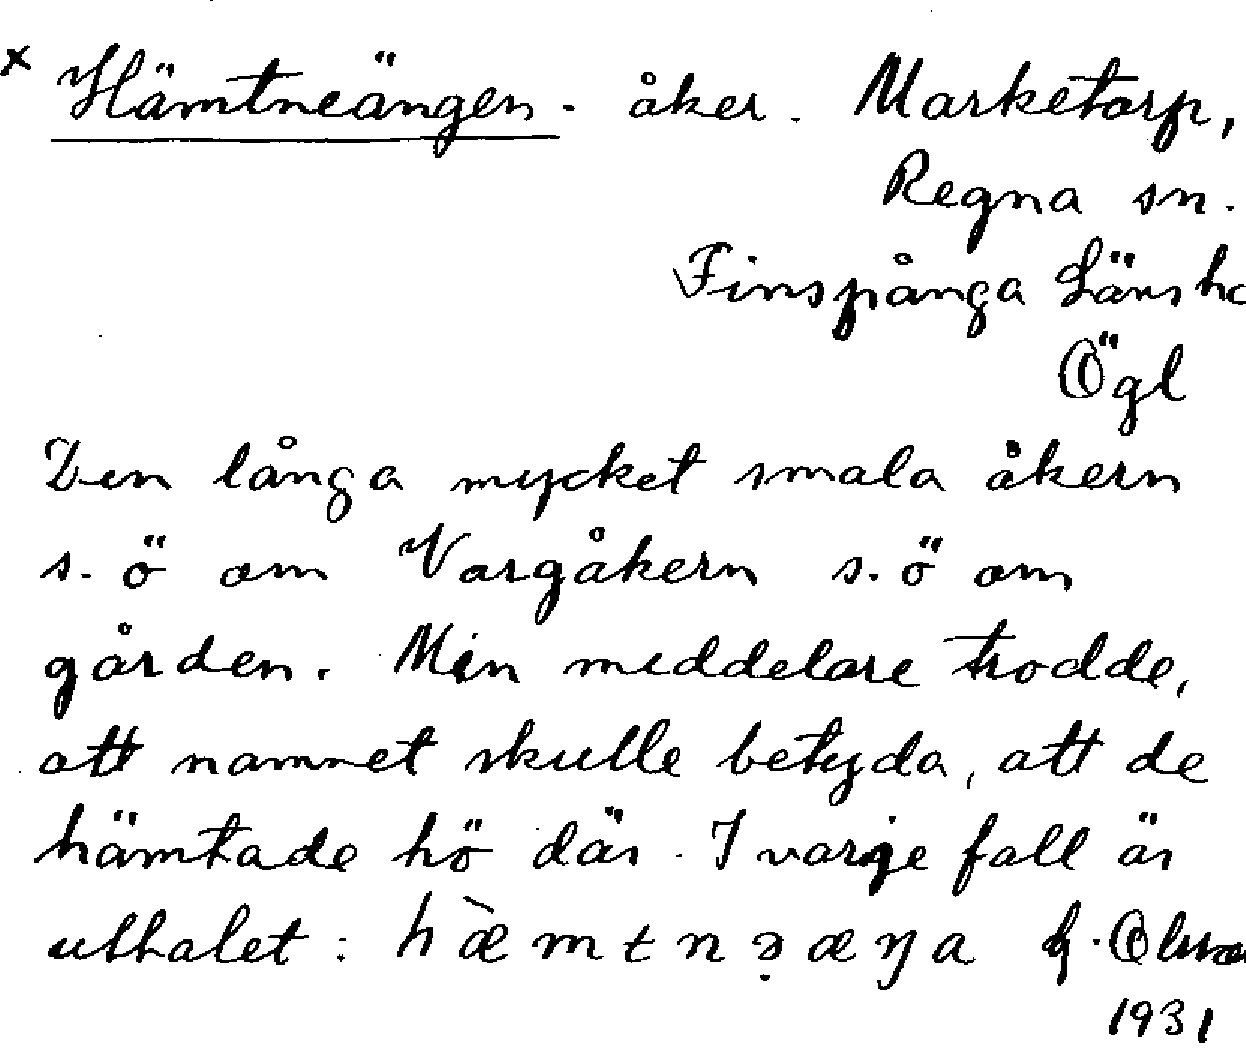 x Hämtneängen - åker. Marketorp,
Regna sn.
Finspånga Länsh
Ögl
Den långa mycket smala åkern
s. ö om Vargåkern s. ö om
gården. Min meddelare trodde,
att namnet skulle betyda, att de
hämtade hö där. I varje fall är
uttalet: hæ̀mtnə̣æŋa
1931